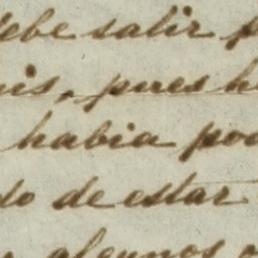 debe salir
pues
habia
do de estar
algunos